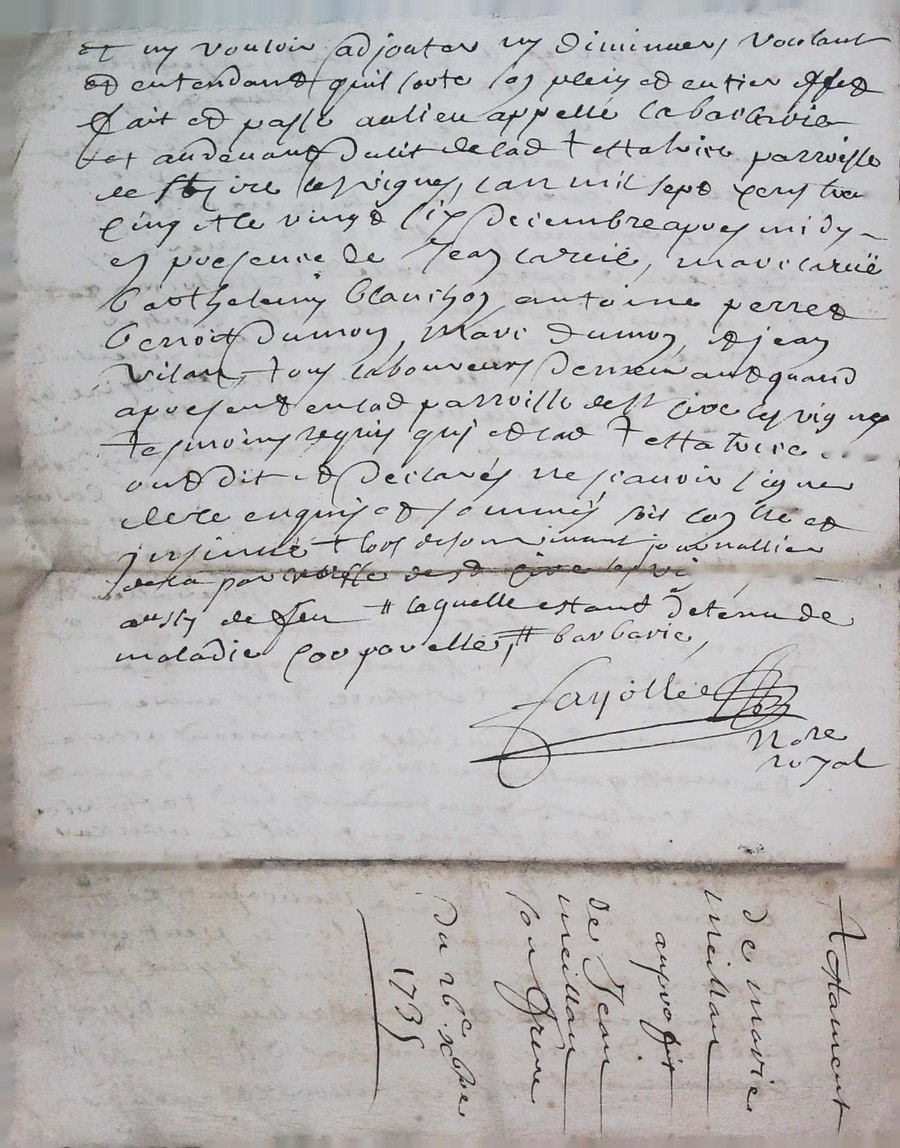 et ny vouloir adjouter ny diminuer, voulant
et entendant quil sorte son plein et entier effet
fait et passé au lieu appellé la barbarie
et au devant du lit de lad testatrice parroisse
de st
les vignes, lan mil sept cens trente
cinq et le vingt six decembre apres midy
en presence de Jean
barthelemy blanchon, antoine perret
benoit dumon, marc dumon, et jean
tous laboureurs
apresent en lad parroisse de st
les vignes
tesmoins requis qui et lad testatrice
ont dit et declarés ne scavoir signer
de ce enquis et sommés soit
et
insinué
de la parroisse de st
les vi
aussy de feu # laquelle estant detenu de
maladie corporelle, # barbarie,
fayolle
nore
royal
testament
de marie
meillan
au profit
de Jean
meillan
son frere
du 26e xbre
1735